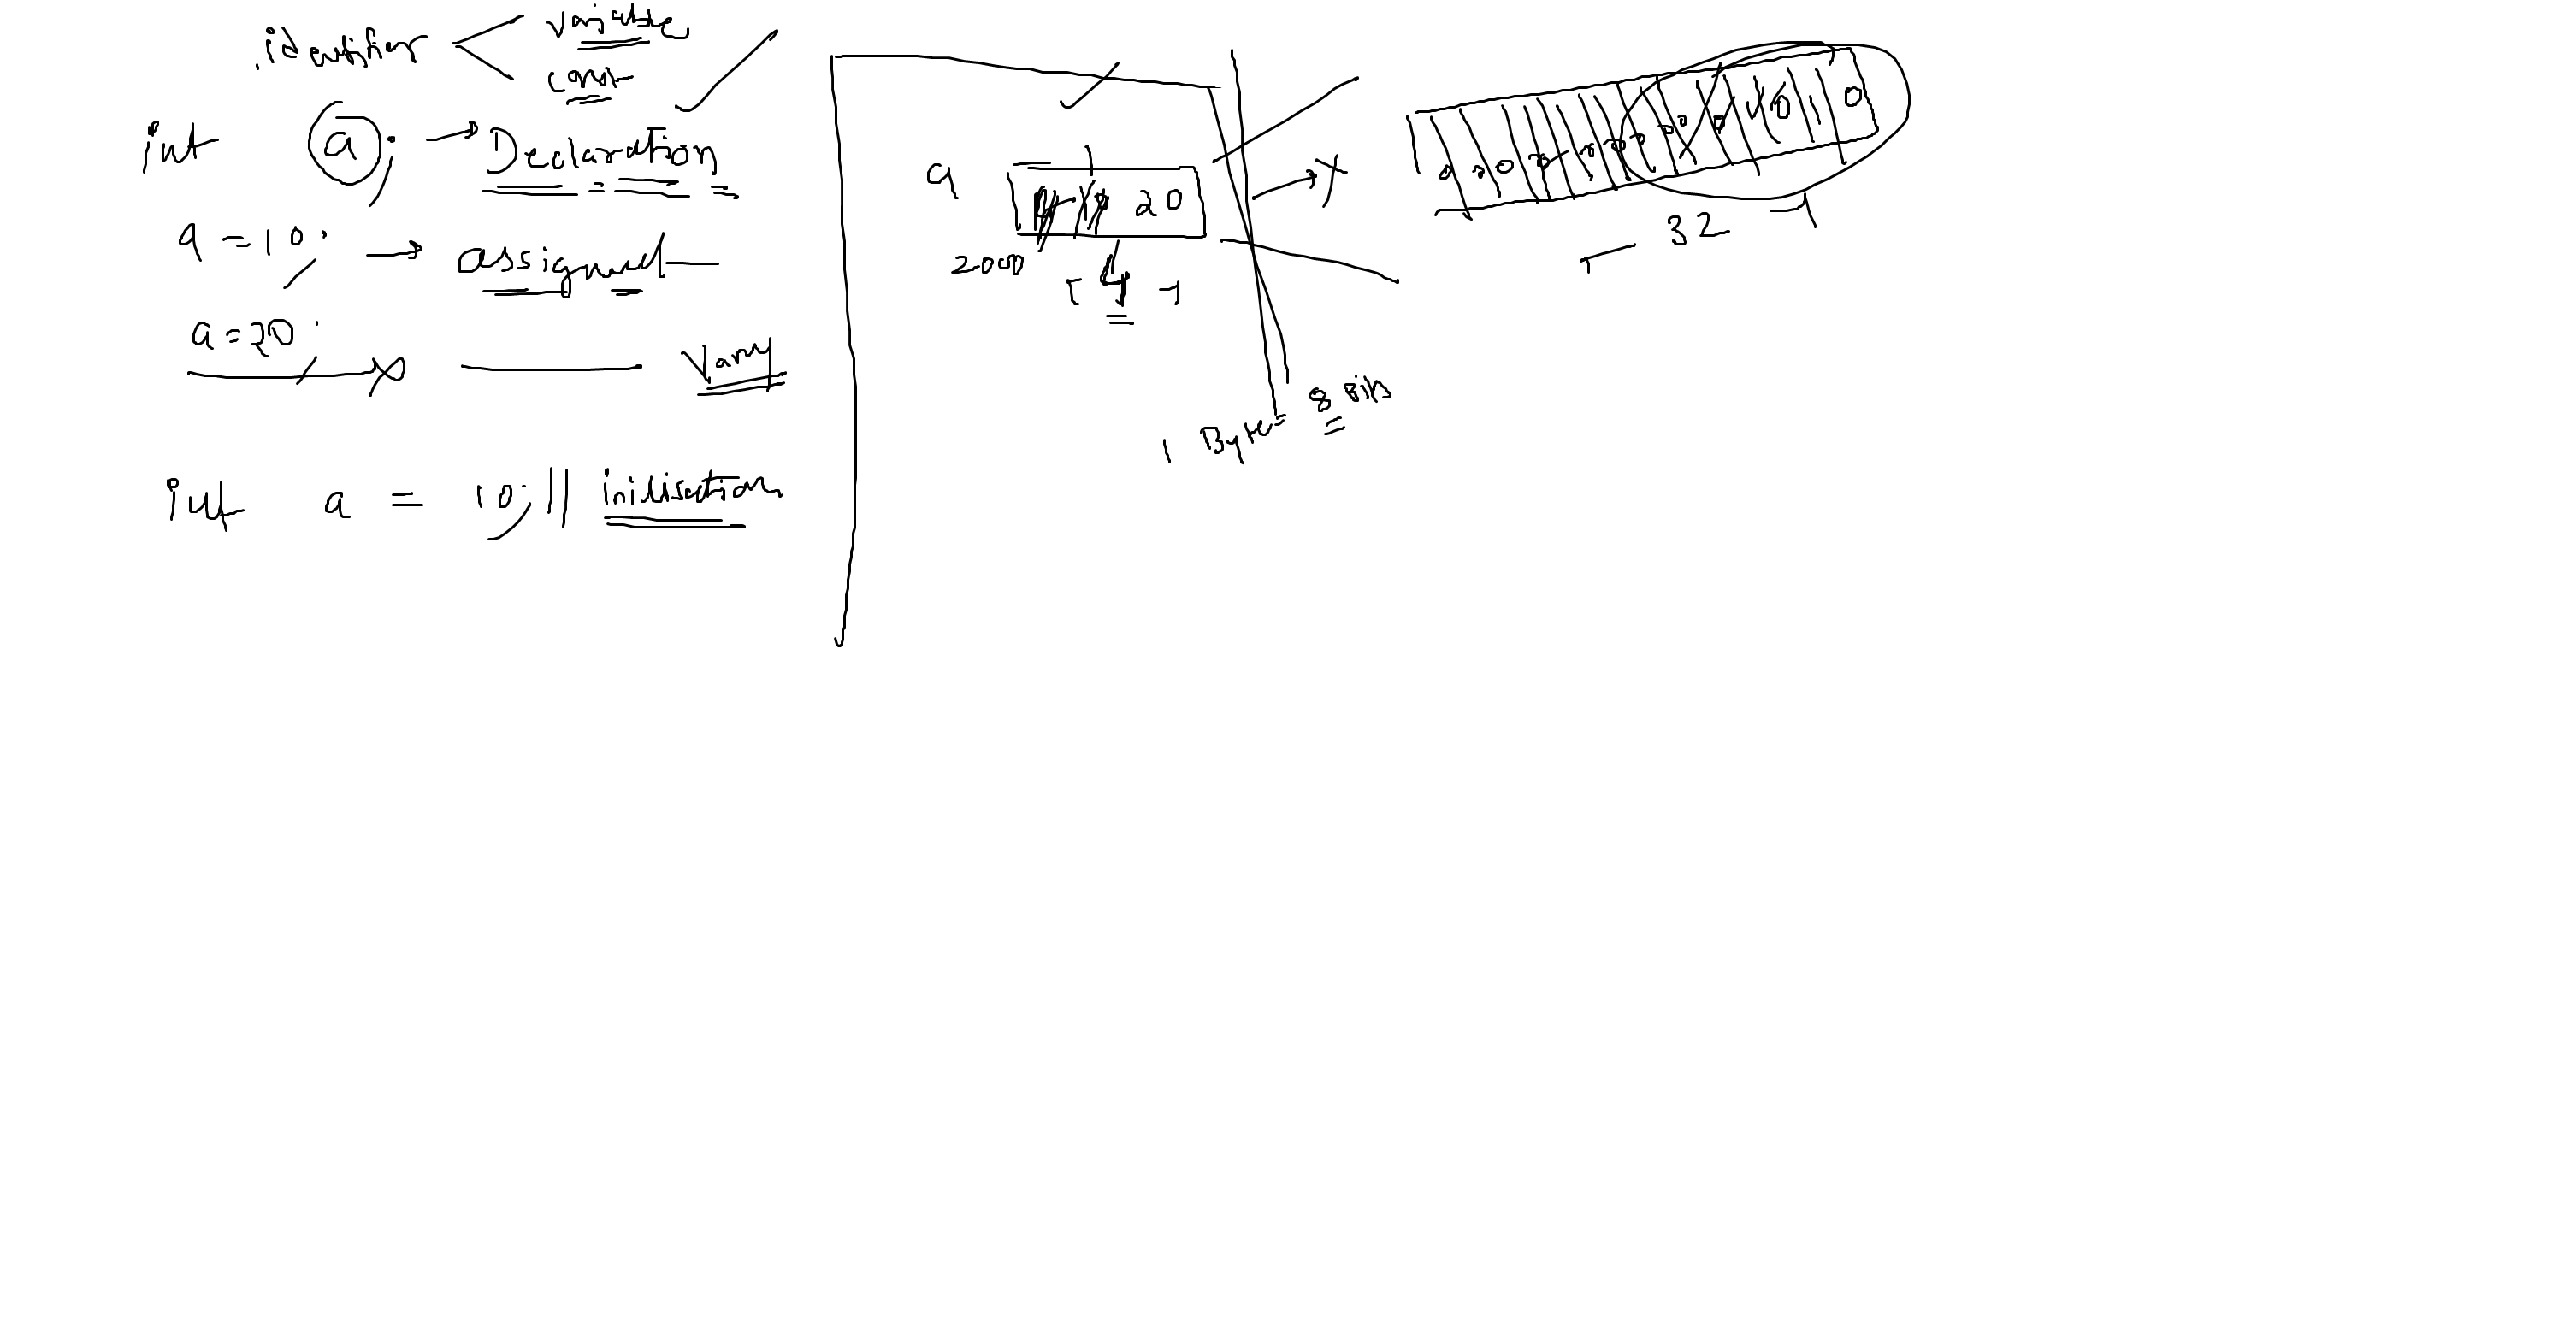 identifier
variable
const
int a; → Declaration
a = 10; → assigned
a = 20;
Vary
int a = 10; // inilisation
a
20
2000
4
1 Byte = 8 Bits
0 1 0
32